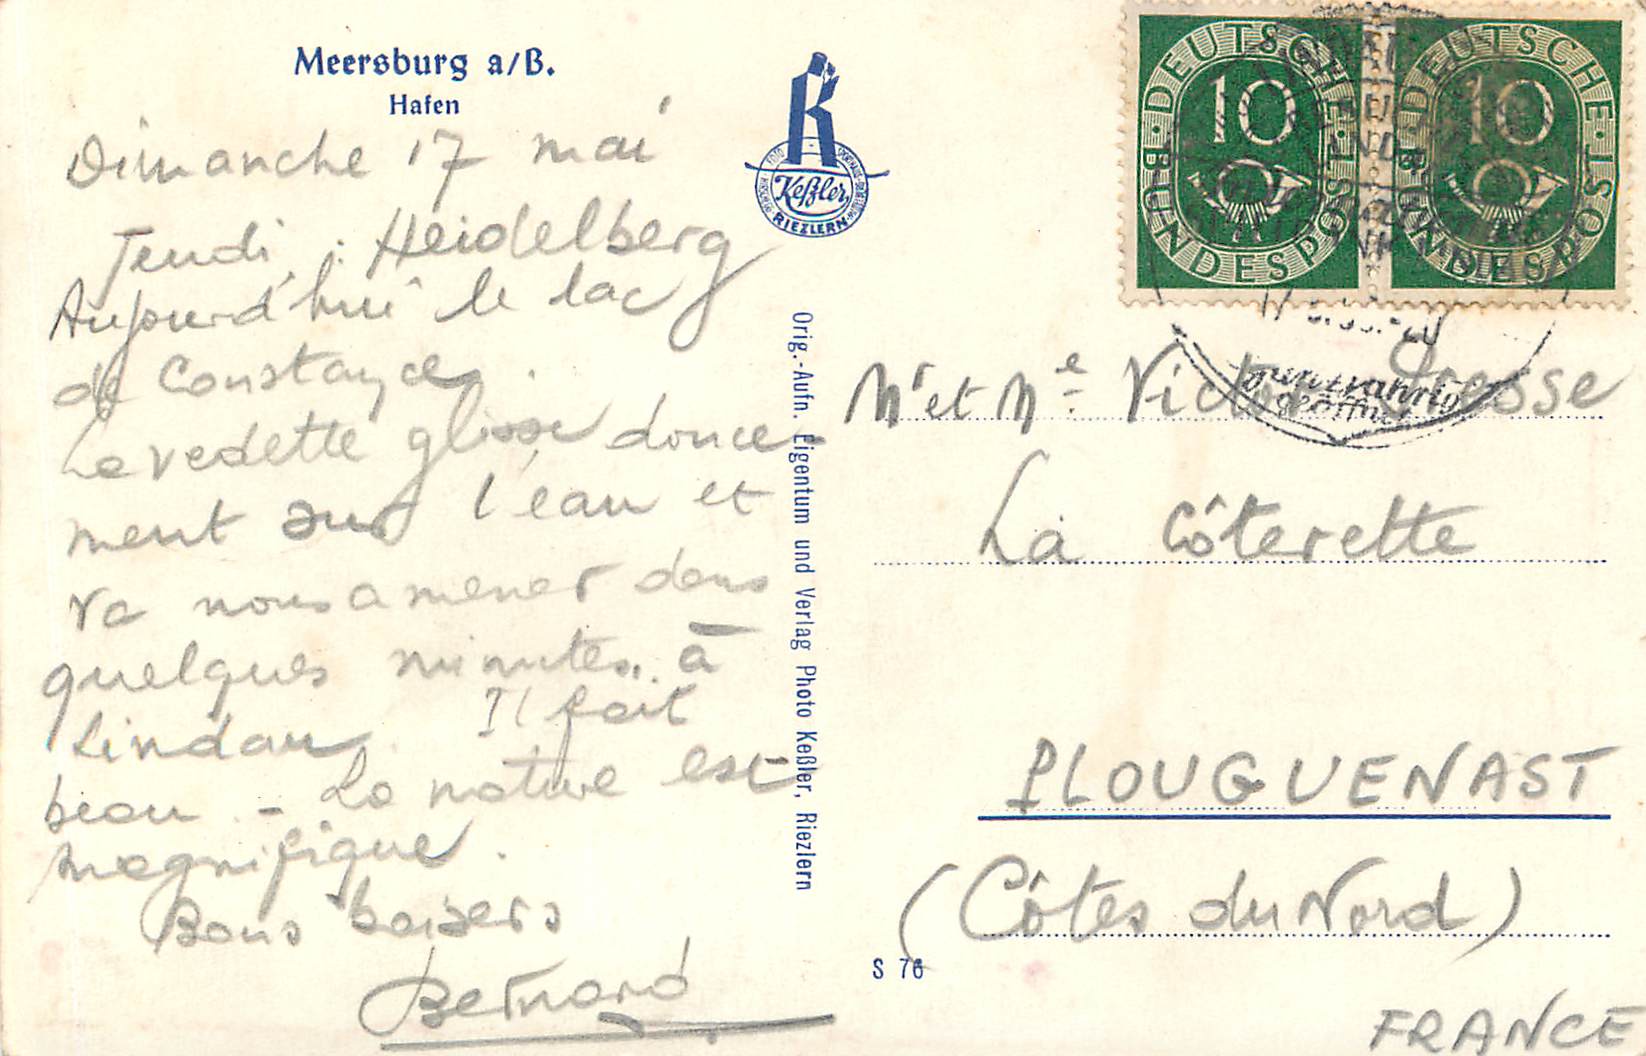 Meersburg a/B.
Hafen
Dimanche 17 mai
Jeudi : Heidelberg
Aujourd'hui le lac
de Constance.
La vedette glisse douce-
ment sur l'eau et
va nous amener dans
quelques minutes à
Lindau. Il fait
beau - La nature est
magnifique.
Bons baisers
Bernard
Keßler
RIEZLERN
Orig.-Aufn. Eigentum und Verlag Photo Keßler, Riezlern
DEUTSCHE BUNDESPOST
10
DEUTSCHE BUNDESPOST
10
Mr et Me Victor
La Côterette
PLOUGUENAST
(Côtes du Nord)
S 76
FRANCE